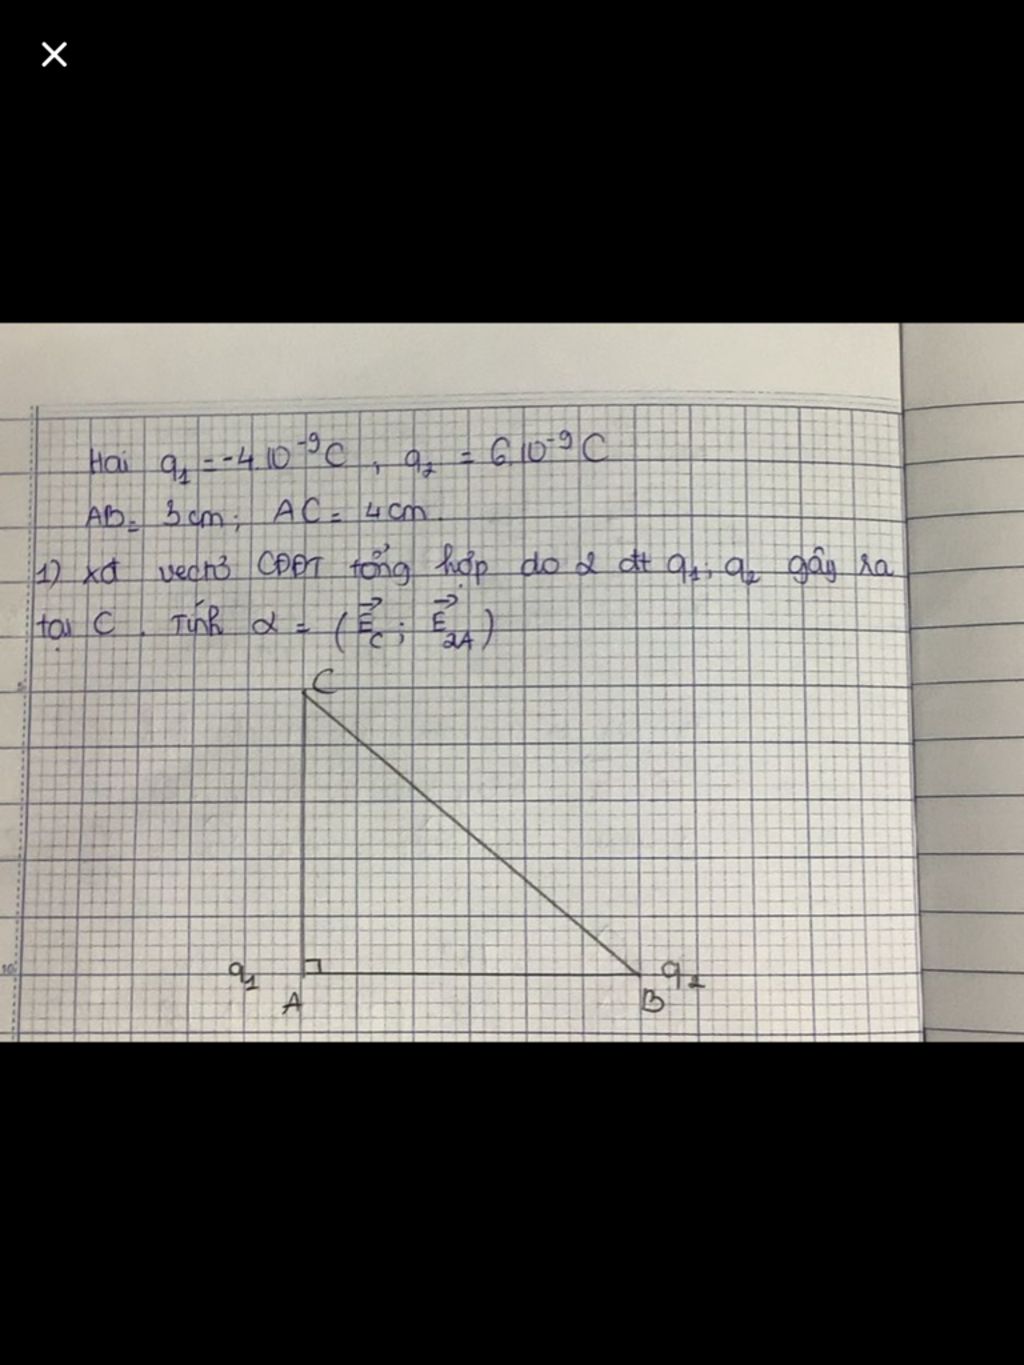 Hai q₁ = -4.10⁻⁹C , q₂ = 6.10⁻⁹C
AB = 3cm; AC = 4cm.
1) xđ vectơ CĐĐT tổng hợp do 2 đt q₁; q₂ gây ra
tại C. Tính α = (E⃗_C; E⃗_2A)
C
q₁
A
q₂
B